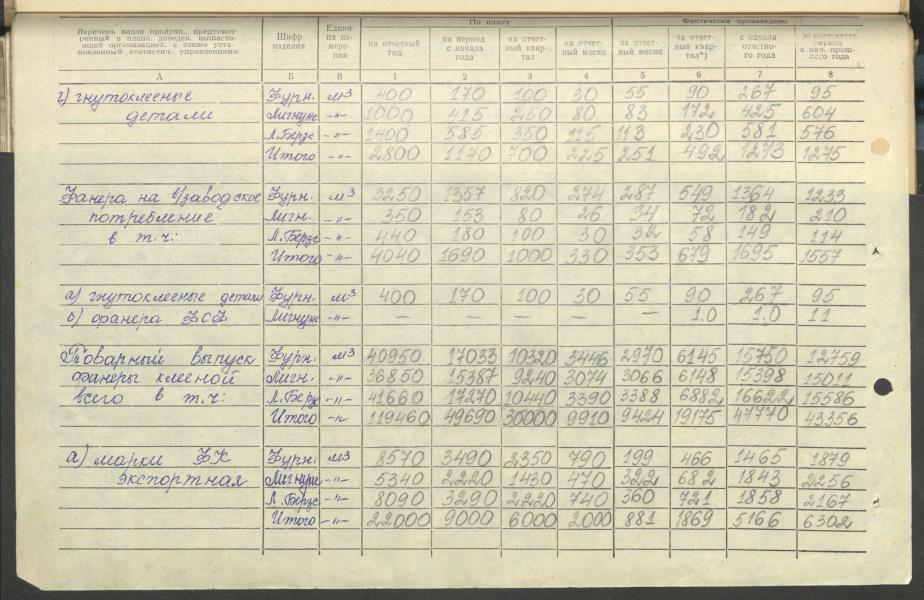 Перечень видов продукц., предусмотренный в плане, доведен. вышестоящей организацией, а также установленный статистич. управлениями | Шифр изделия | Единица измерения | По плану | Фактически произведено
на отчетный год | на период с начала года | на отчетный квартал | на отчетный месяц | за отчетный месяц | за отчетный квартал*) | с начала отчетного года | за соответств. период с нач. прошлого года
А | Б | В | 1 | 2 | 3 | 4 | 5 | 6 | 7 | 8
г) гнутоклееные | Фурн. | м3 | 400 | 170 | 100 | 30 | 55 | 90 | 267 | 95
детали | Лигнумс | -"- | 1000 | 415 | 250 | 80 | 83 | 172 | 425 | 604
Л.Берзс | -"- | 1400 | 585 | 350 | 115 | 113 | 230 | 581 | 576
Итого | -"- | 2800 | 1170 | 700 | 225 | 251 | 492 | 1273 | 1275
Фанера на в/заводское | Фурн. | м3 | 3250 | 1357 | 820 | 274 | 287 | 549 | 1364 | 1233
потребление | Лигн. | -"- | 350 | 153 | 80 | 26 | 34 | 72 | 182 | 210
в т.ч: | Л.Берзс | -"- | 440 | 180 | 100 | 30 | 32 | 58 | 149 | 114
Итого | -"- | 4040 | 1690 | 1000 | 330 | 353 | 679 | 1695 | 1557
а) гнутоклееные детали | Фурн. | м3 | 400 | 170 | 100 | 30 | 55 | 90 | 267 | 95
б) фанера ФСФ | Лигнумс | -"- | — | — | — | — | — | 1.0 | 1.0 | 11
Товарный выпуск | Фурн. | м3 | 40950 | 17033 | 10320 | 3446 | 2970 | 6145 | 15750 | 12759
фанеры клееной | Лигн. | -"- | 36850 | 15387 | 9240 | 3074 | 3066 | 6148 | 15398 | 15011
всего в т.ч: | Л.Берз | -"- | 41660 | 17270 | 10440 | 3390 | 3388 | 6882 | 16622 | 15586
Итого | -"- | 119460 | 49690 | 30000 | 9910 | 9424 | 19175 | 47770 | 43356
а) марки ФК | Фурн. | м3 | 8570 | 3490 | 2350 | 790 | 199 | 466 | 1465 | 1879
экспортная | Лигнумс | -"- | 5340 | 2220 | 1430 | 470 | 322 | 682 | 1843 | 2256
Л.Берзс | -"- | 8090 | 3290 | 2220 | 740 | 360 | 721 | 1858 | 2167
Итого | -"- | 22000 | 9000 | 6000 | 2000 | 881 | 1869 | 5166 | 6302